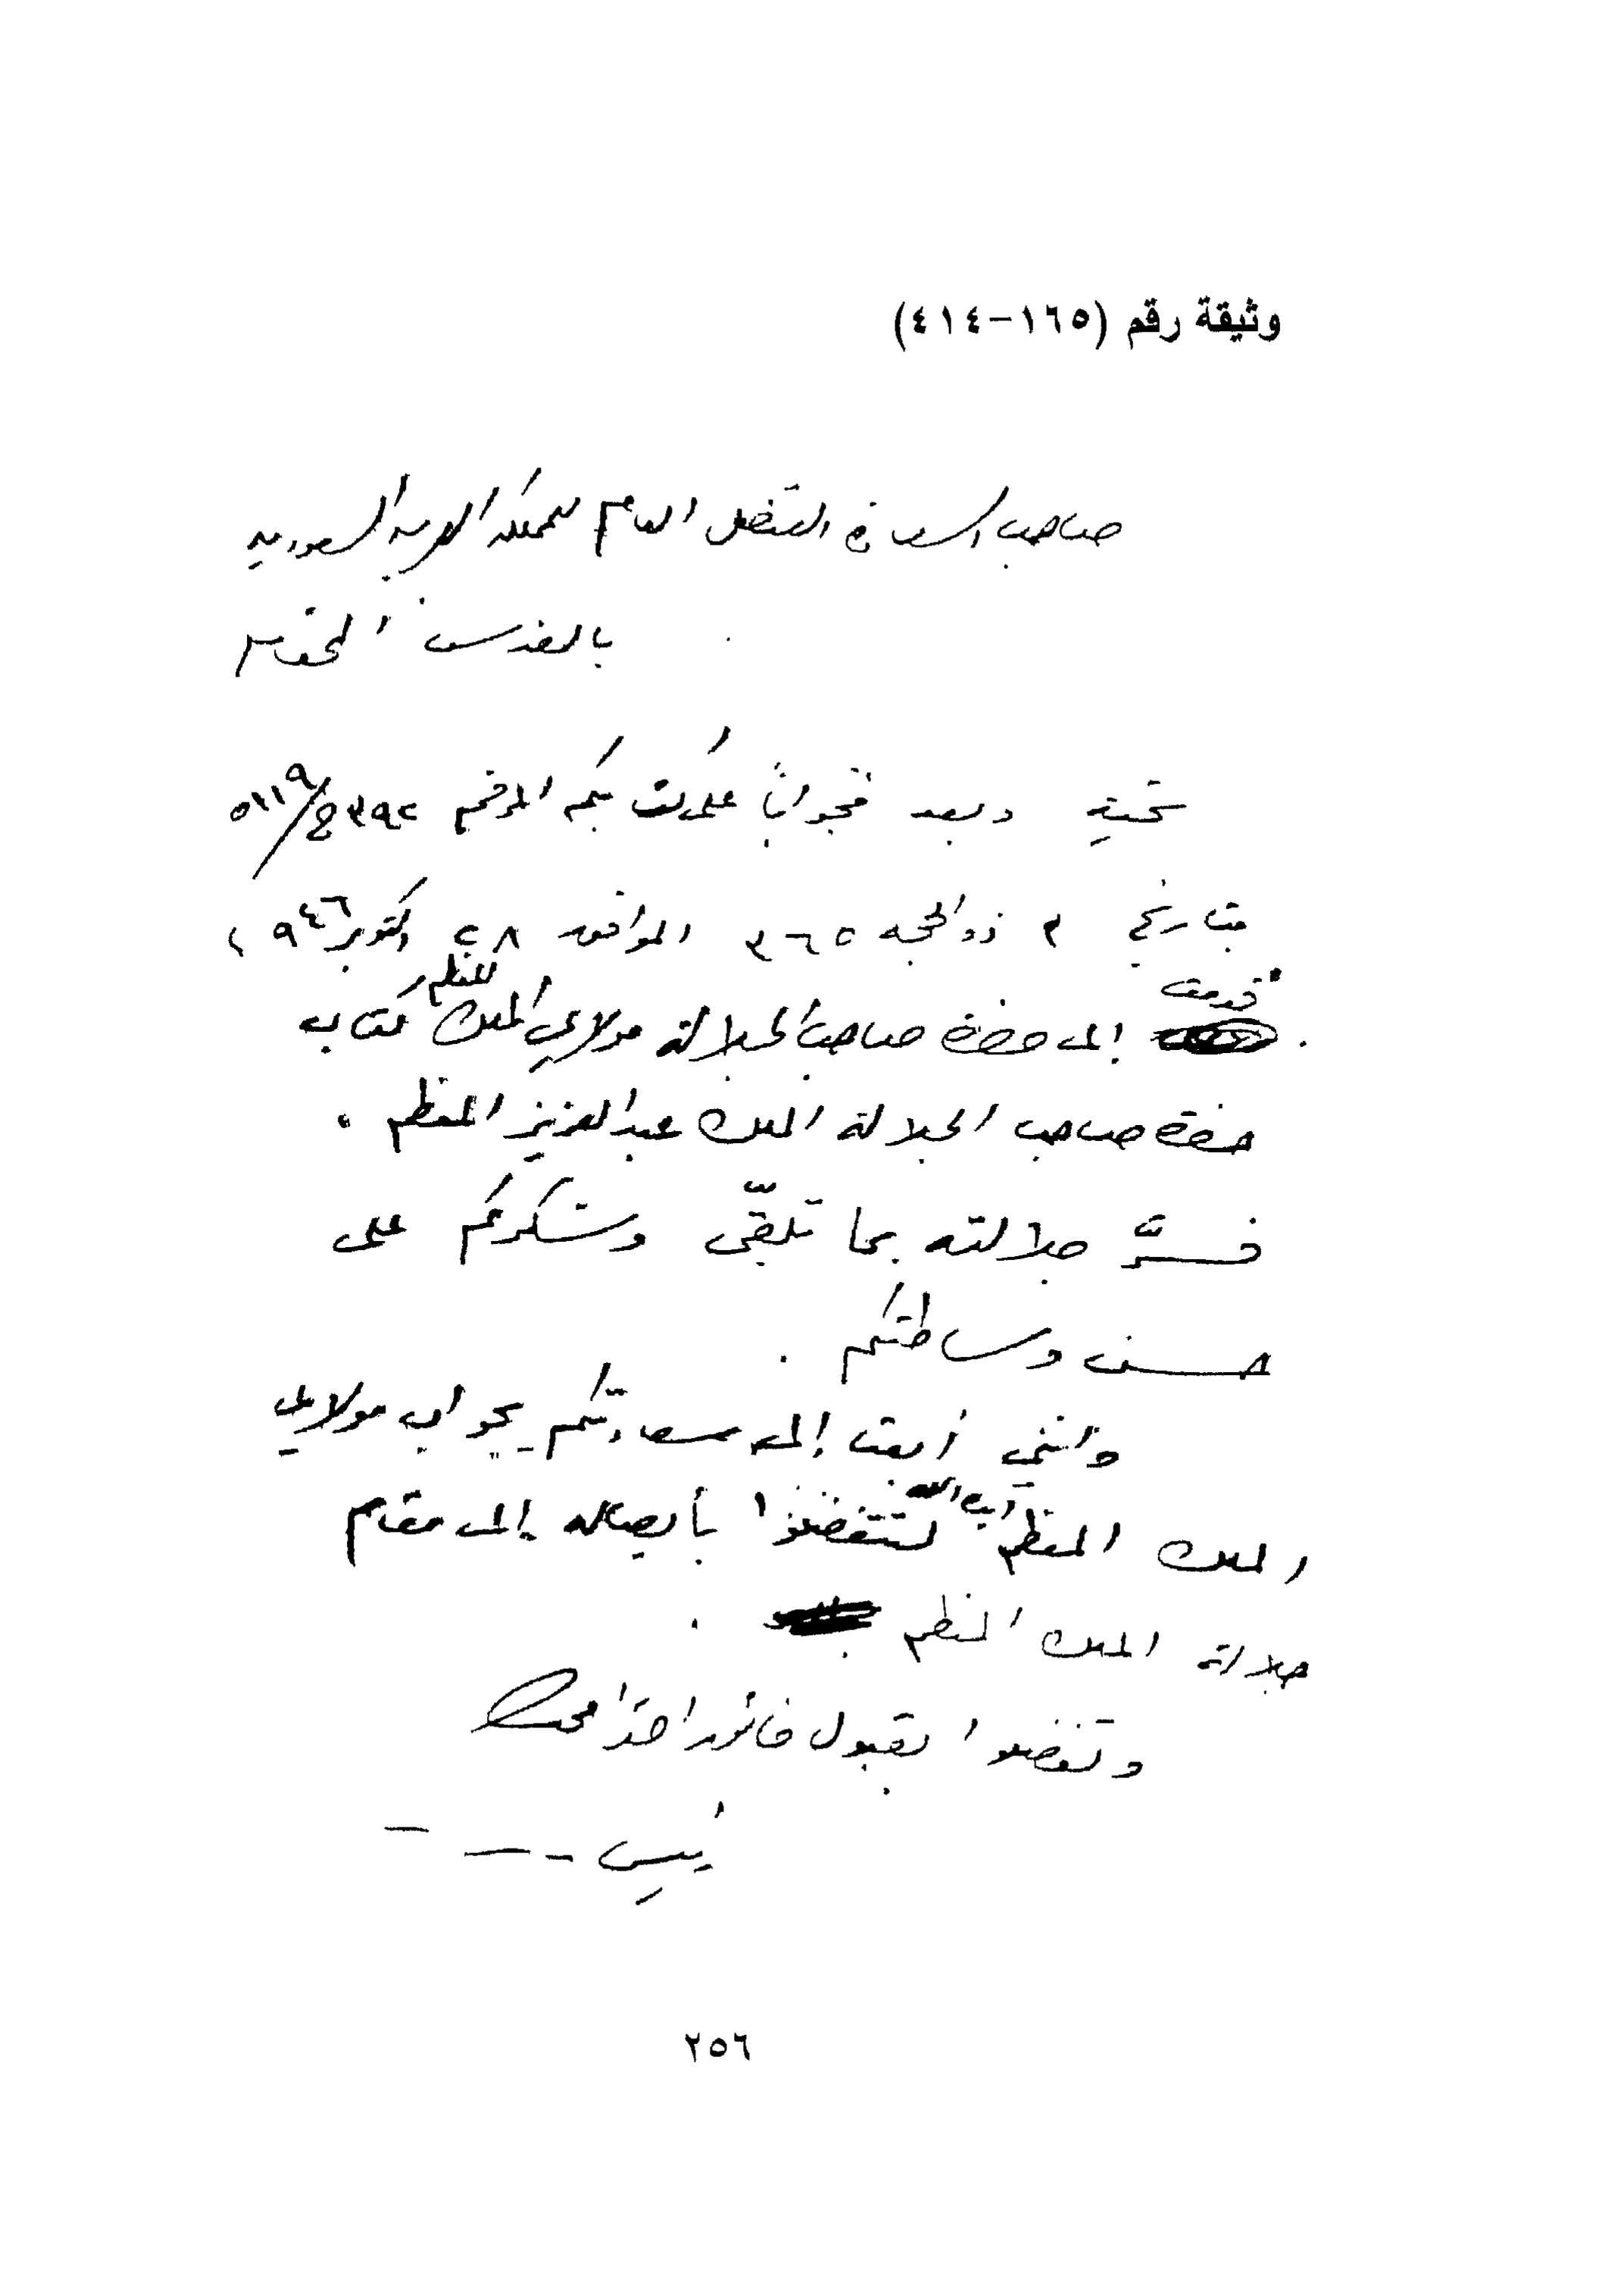 وثيقة رقم (١٦٥-٤١٤)
صاحب السعادة القنصل العام للمملكة العربية السعودية
بالقدس المحترم
تحية وبعد فجواباً على كتابكم المرقم ٣٩٢
بتاريخ ٣ ذو الحجة ٣٦٥ الموافق ٢٨ اكتوبر ٩٤٦
قدمت إلى حضرة صاحب الجلالة مولاي الملك المعظم كتاب
حضرة صاحب الجلالة الملك عبد العزيز المعظم .
فسرَّ جلالته بما تلقّى وشكركم على
حسن وساطتكم .
وانني أبعث إلى سعادتكم بجواب مولاي
الملك المعظم ايده الله لتتفضلوا بأيصاله إلى مقام
جلالة الملك المعظم .
وتفضلوا بقبول فائق احترامي
رئيس
٢٥٦